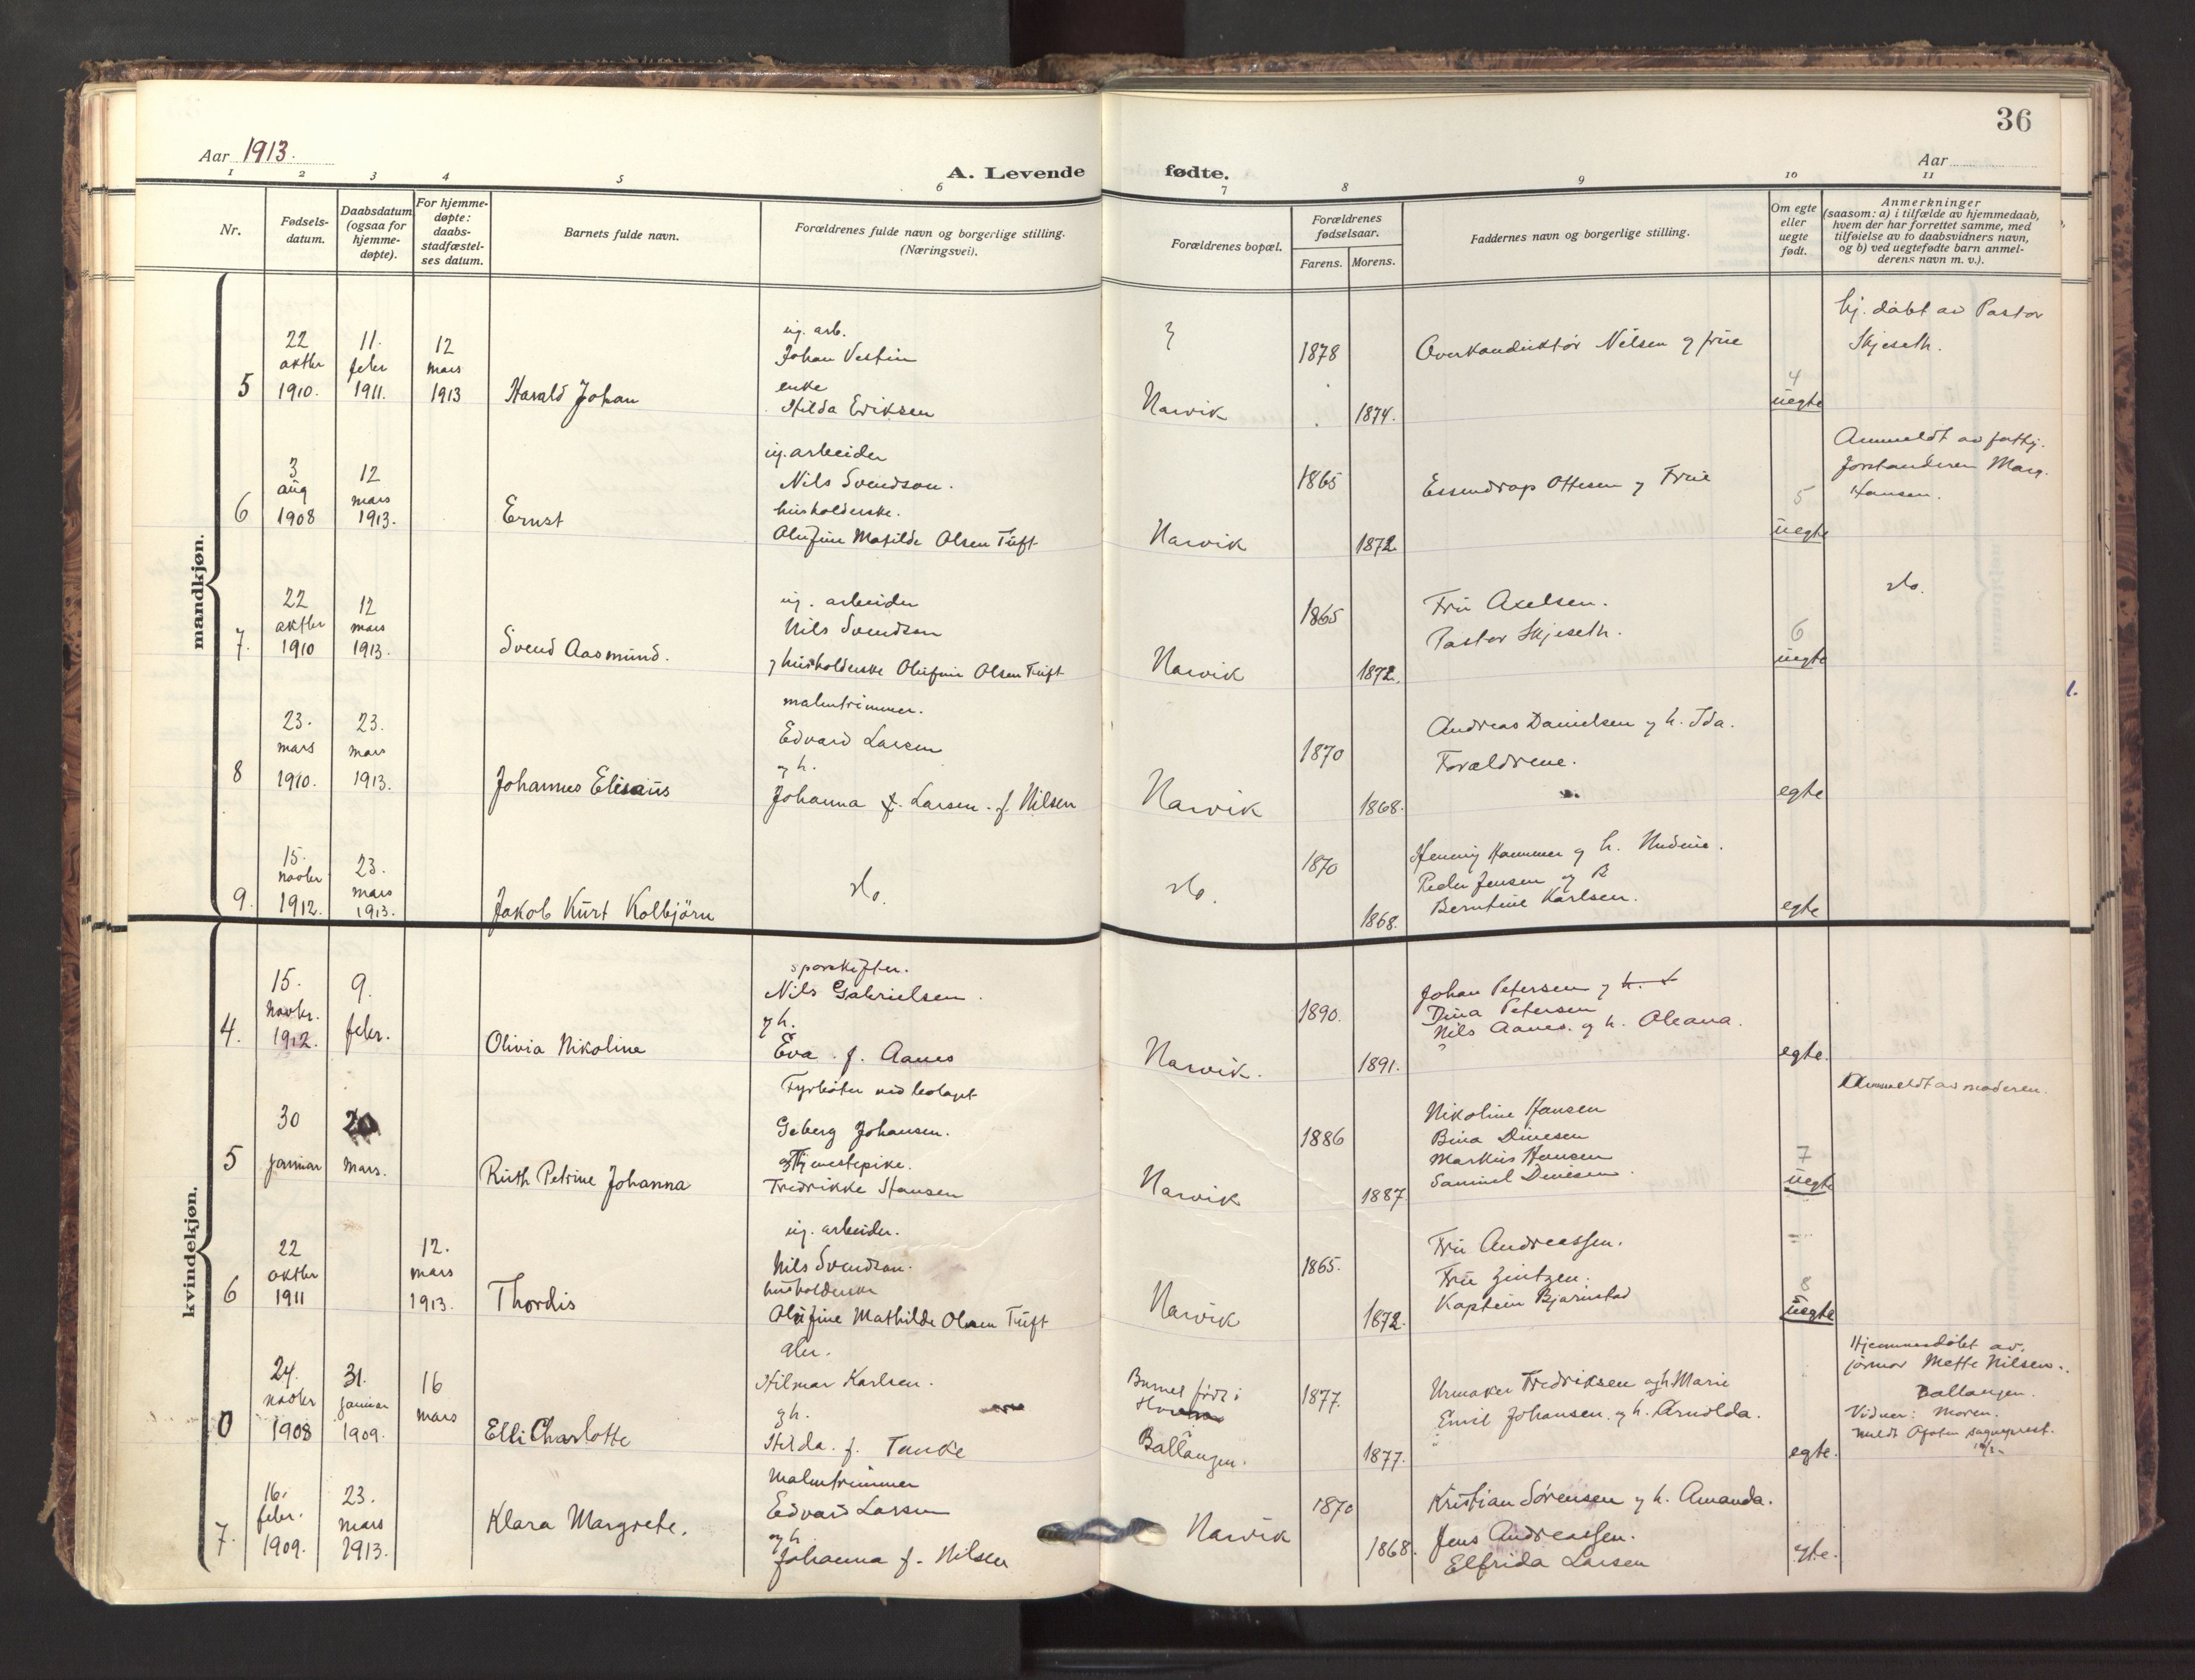 36
Aar 1913.
A. Levende fødte.
Aar
1 2 3 4 5 6 7 8 9 10 11
Nr.
Fødsels-
datum.
Daabsdatum
(ogsaa for
hjemme-
døpte).
For hjemme-
døpte:
daabs-
stadfæstel-
ses datum.
Barnets fulde navn.
Forældrenes fulde navn og borgerlige stilling.
(Næringsvei).
Forældrenes bopæl.
Forældrenes
fødselsaar.
Farens. Morens.
Faddernes navn og borgerlige stilling.
Om egte
eller
uegte
født.
Anmerkninger
(saasom: a) i tilfælde av hjemmedaab,
hvem der har forrettet samme, med
tilføielse av to daabsvidners navn,
og b) ved uegtefødte barn anmel-
derens navn m. v.).
mandkjøn.
5
22
oktbr
1910.
11.
febr
1911.
12
mars
1913
Harald Johan
ug. arb.
Johan Vestin
enke
Hilda Eriksen
?
Narvik
1878
1874.
Overkonduktør Nilsen og frue
4
uegte
hj. døbt av Pastor
Skjeseth.
6
3
aug
1908
12
mars
1913.
Ernst
ug. arbeider
Nils Svendson.
husholderske.
Olufine Matilde Olsen Tuft
Narvik
1865
1872
Essendrop Ottesen og Frue
5
uegte
Anmeldt av fatthj.
forstanderen Marg.
Hansen.
7.
22
oktbr
1910
12
mars
1913.
Svend Aasmund.
ug. arbeider
Nils Svendson
og husholderske Olufine Olsen Tuft
Narvik
1865
1872.
Fru Axelsen.
Pastor Skjeseth.
6
uegte
do.
8
23.
mars
1910.
23.
mars
1913.
Johannes Elisæus
malmtrimmer.
Edvard Larsen
og h.
Johanna f. Larsen. f. Nilsen
Narvik
1870
1868.
Andreas Danielsen og h. Ida.
Forældrene.
egte
9.
15.
novbr
1912.
23.
mars
1913.
Jakob Kurt Kolbjörn
do.
do.
1870
1868.
Henning Hammer og h.
Peder Jensen og B
Berntine Karlsen.
egte
kvindekjøn.
4.
15.
novbr.
1912.
9.
febr.
Olivia Nikoline
sporskifter.
Nils Gabrielsen.
og h.
Eva. f. Aanes
Narvik.
1890.
1891.
Johan Petersen og h.
Dina Petersen
Nils Aanes. og h. Oleana.
egte.
5
30
januar
20
mars.
Ruth Petrine Johanna
Fyrbøter ved bolaget
Geberg Johansen.
og Tjenestepike.
Fredrikke Hansen
Narvik
1886
1887
Nikoline Hansen
Bina Dinesen
Markus Hansen
Samuel Dinesen.
7
uegte
Anmeldt av moderen.
6
22
oktbr
1911
12.
mars
1913.
Thordis
ug. arbeider.
Nils Svendson.
husholderske
Olufine Mathilde Olsen Tuft
Narvik
1865.
1872.
Fru Andreassen.
Fru Zintzen.
Kaptein Bjørnstad
8
uegte
0
24.
novbr
1908
31.
januar
1909.
16
mars
Elli Charlotte
Hilmar Karlsen.
og h.
Hilda. f. Tanke
Barnet født i
Ballangen.
1877.
1877.
Urmaker Fredriksen og h Marie
Emil Johansen. og h. Arnolda.
egte.
Hjemmedøbt av
jormor Mette Nilsen.
Ballangen.
Vidner: Moren.
meldt Ofoten sogneprest.
7.
16.
febr.
1909.
23.
mars
1913.
Klara Margrete.
Malmtrimmer
Edvard Larsen
og h.
Johanna f. Nilsen
Narvik
1870
1868.
Kristian Sørensen og h. Amanda.
Jens Andreassen.
Elfrida Larsen
egte.